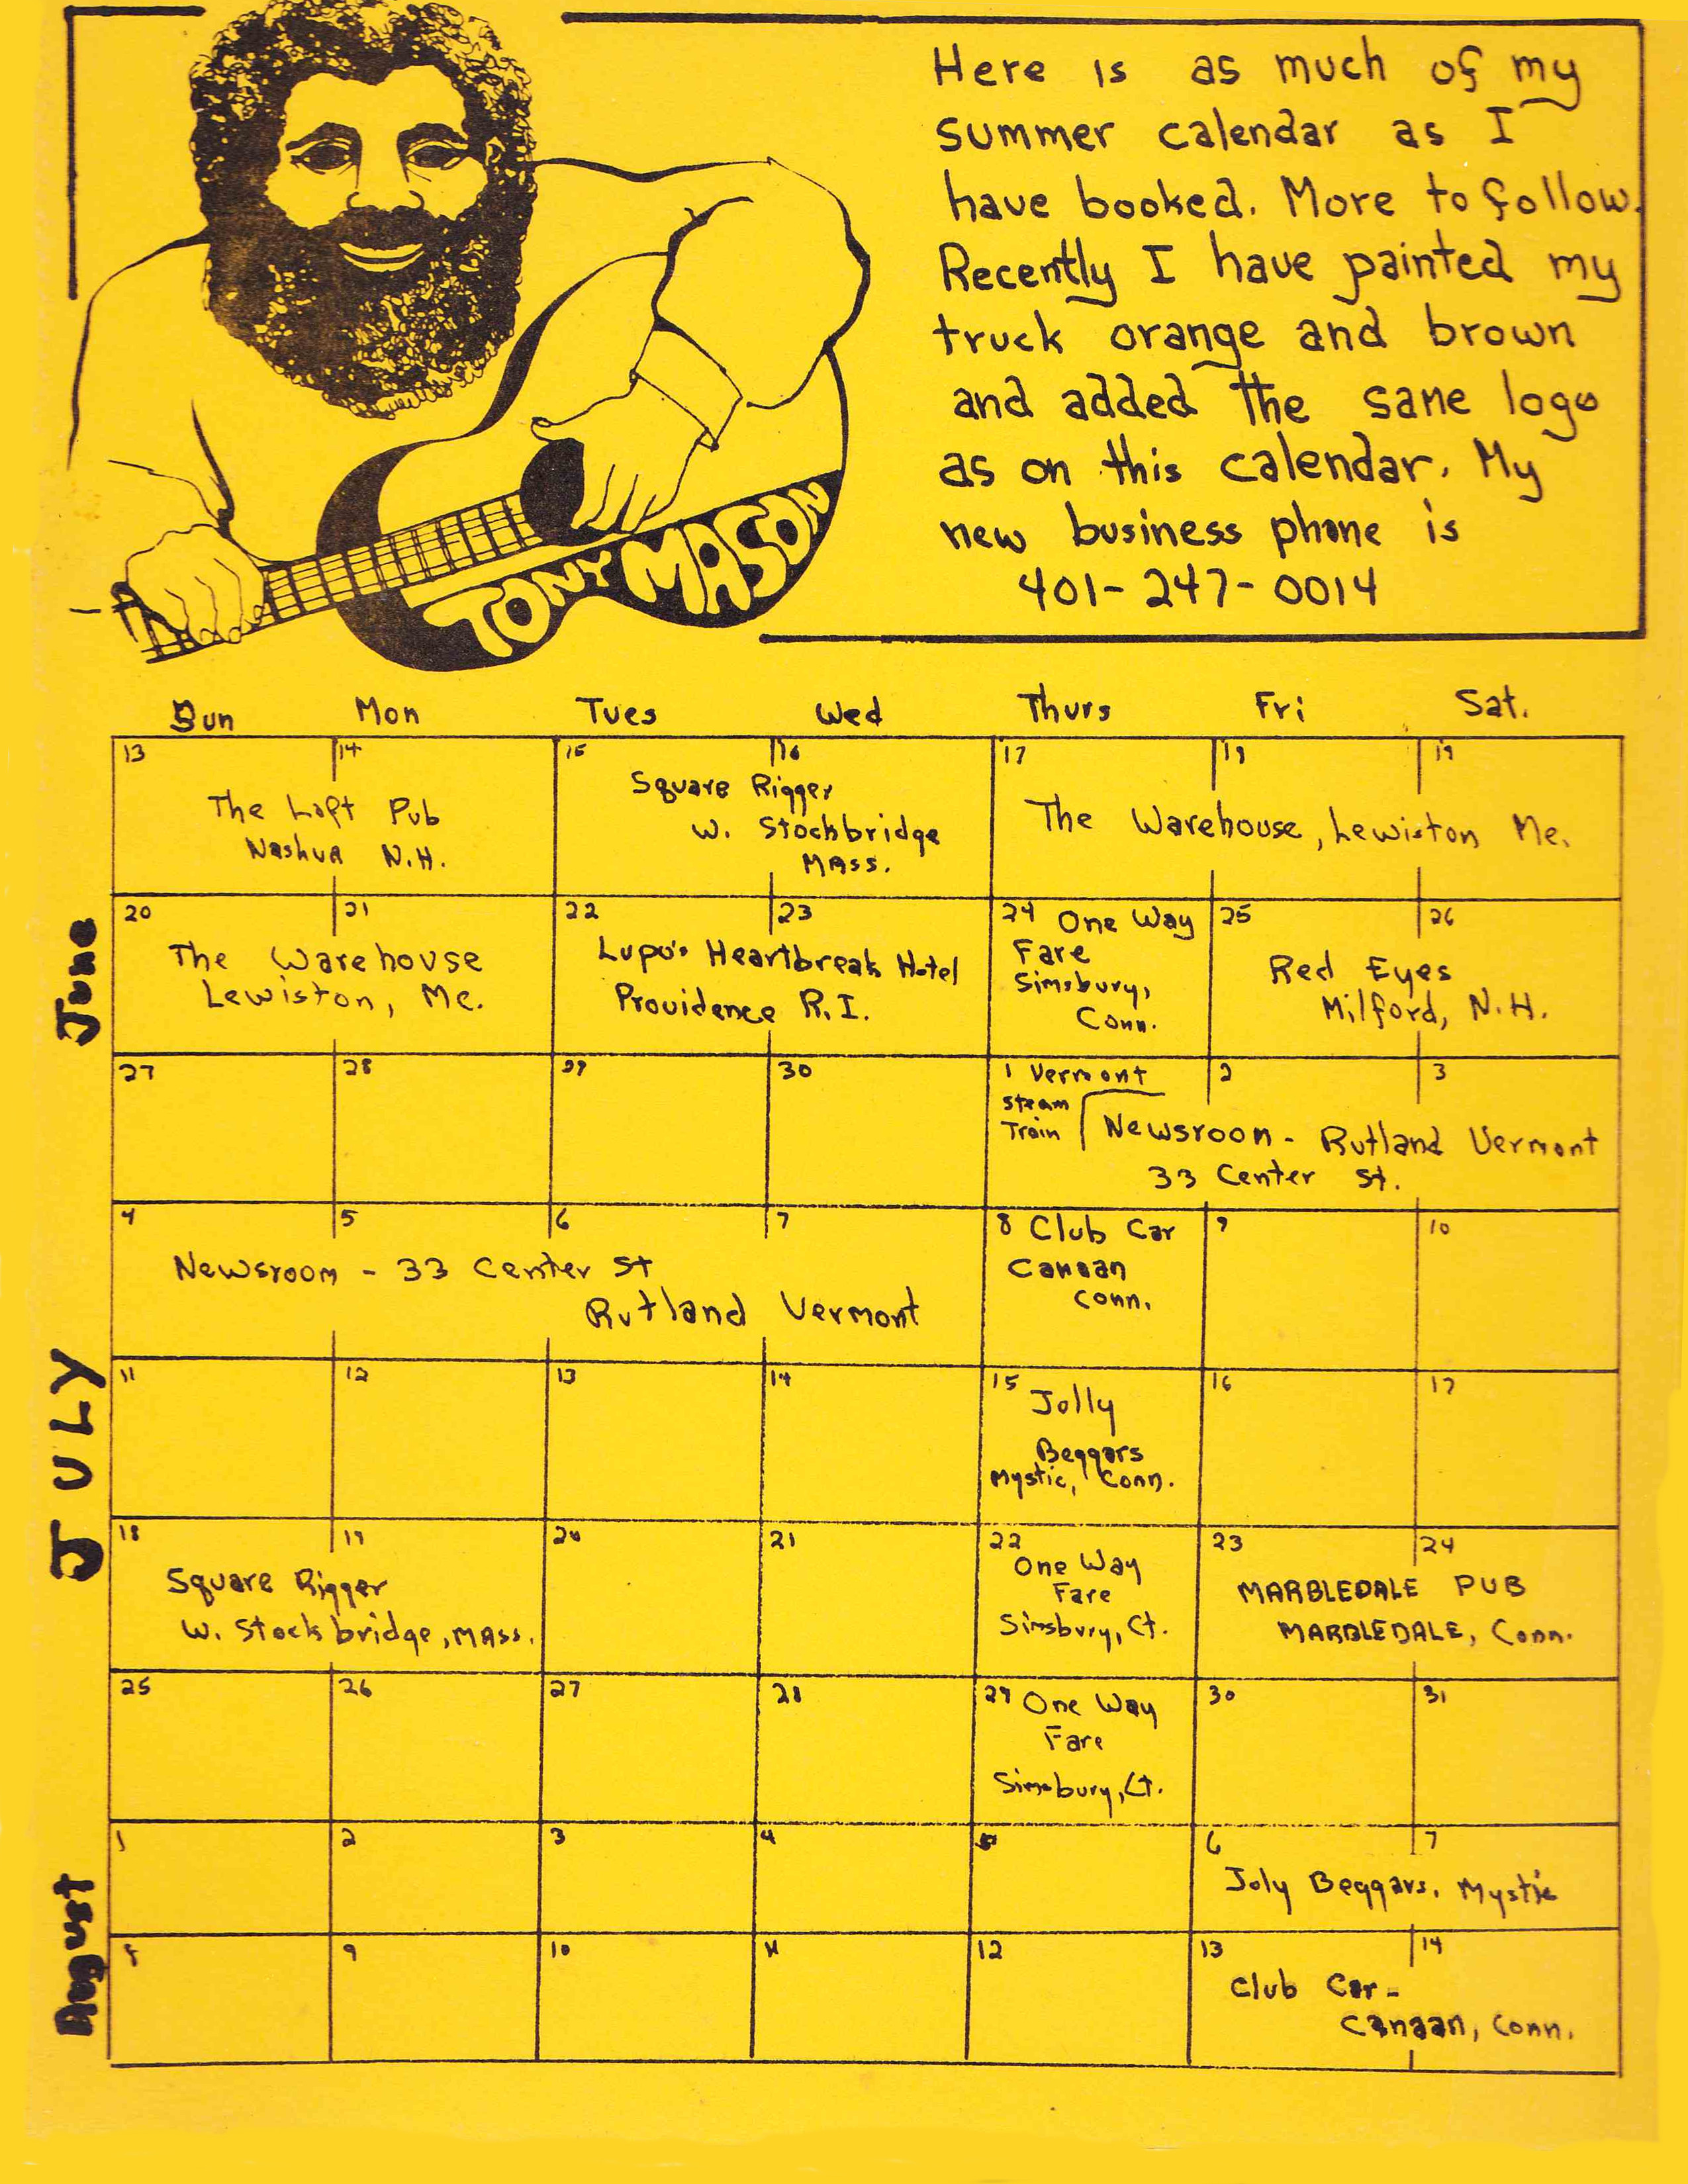 Here is as much of my
summer calendar as I
have booked. More to follow.
Recently I have painted my
truck orange and brown
and added the same logo
as on this calendar. My
new business phone is
401-247-0014
TONY MASON
Sun Mon Tues Wed Thurs Fri Sat.
June
13 14 15 16 17 18 19
The Loft Pub
Nashua N.H.
Square Rigger
W. Stockbridge
MASS.
The Warehouse, Lewiston Me.
20 21 22 23 24 25 26
The Warehouse
Lewiston, Me.
Lupo's Heartbreak Hotel
Providence R.I.
One Way
Fare
Simsbury,
Conn.
Red Eyes
Milford, N.H.
27 28 29 30 1 2 3
Vermont
Steam
Train
Newsroom - Rutland Vermont
33 Center St.
JULY
4 5 6 7 8 9 10
Newsroom - 33 Center St
Rutland Vermont
Club Car
Canaan
Conn.
11 12 13 14 15 16 17
Jolly
Beggars
Mystic, Conn.
18 19 20 21 22 23 24
Square Rigger
W. Stockbridge, MASS.
One Way
Fare
Simsbury, Ct.
MARBLEDALE PUB
MARBLEDALE, Conn.
25 26 27 28 29 30 31
One Way
Fare
Simsbury, Ct.
August
1 2 3 4 5 6 7
Joly Beggars, Mystic
8 9 10 11 12 13 14
Club Car -
Canaan, Conn.